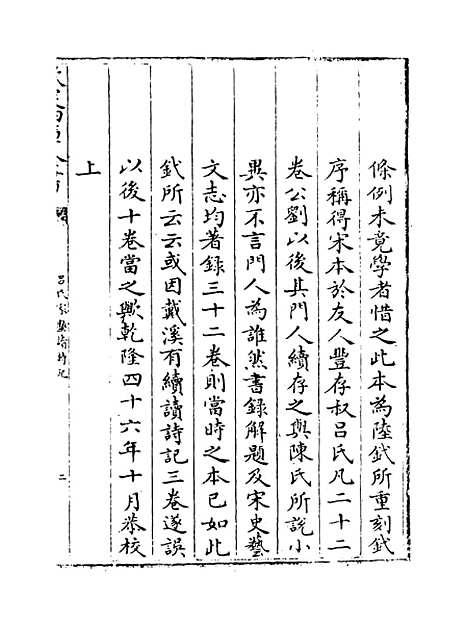 條例未竟學者惜之此本為陸釴所重刻釴
序稱得宋本於友人豐存叔呂氏凡二十二
卷公劉以後其門人續存之與陳氏所說小
異亦不言門人為誰然書錄解題及宋史藝
文志均著錄三十二卷則當時之本已如此
釴所云云或因戴溪有續讀詩記三卷遂誤
以後十卷當之歟乾隆四十六年十月恭校
上
欽定四庫全書
呂氏家塾讀詩記
二